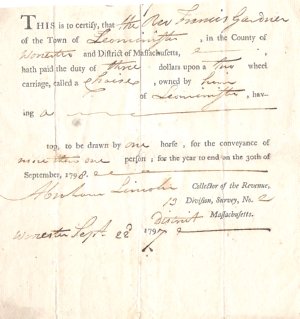 THIS is to certify, that the Rev Francis Gardner
of the Town of Leominster, in the County of
Worcester and District of Massachusetts, a
hath paid the duty of three dollars upon a two wheel
carriage, called a Chaise, owned by him
of Leominster, hav-
ing a
top, to be drawn by one horse; for the conveyance of
more than one person; for the year to end on the 30th of
September, 1798.
Abraham Lincoln Collector of the Revenue,
13 Division, Survey, No. 2
District Massachusetts.
Worcester Sept. 28 1797